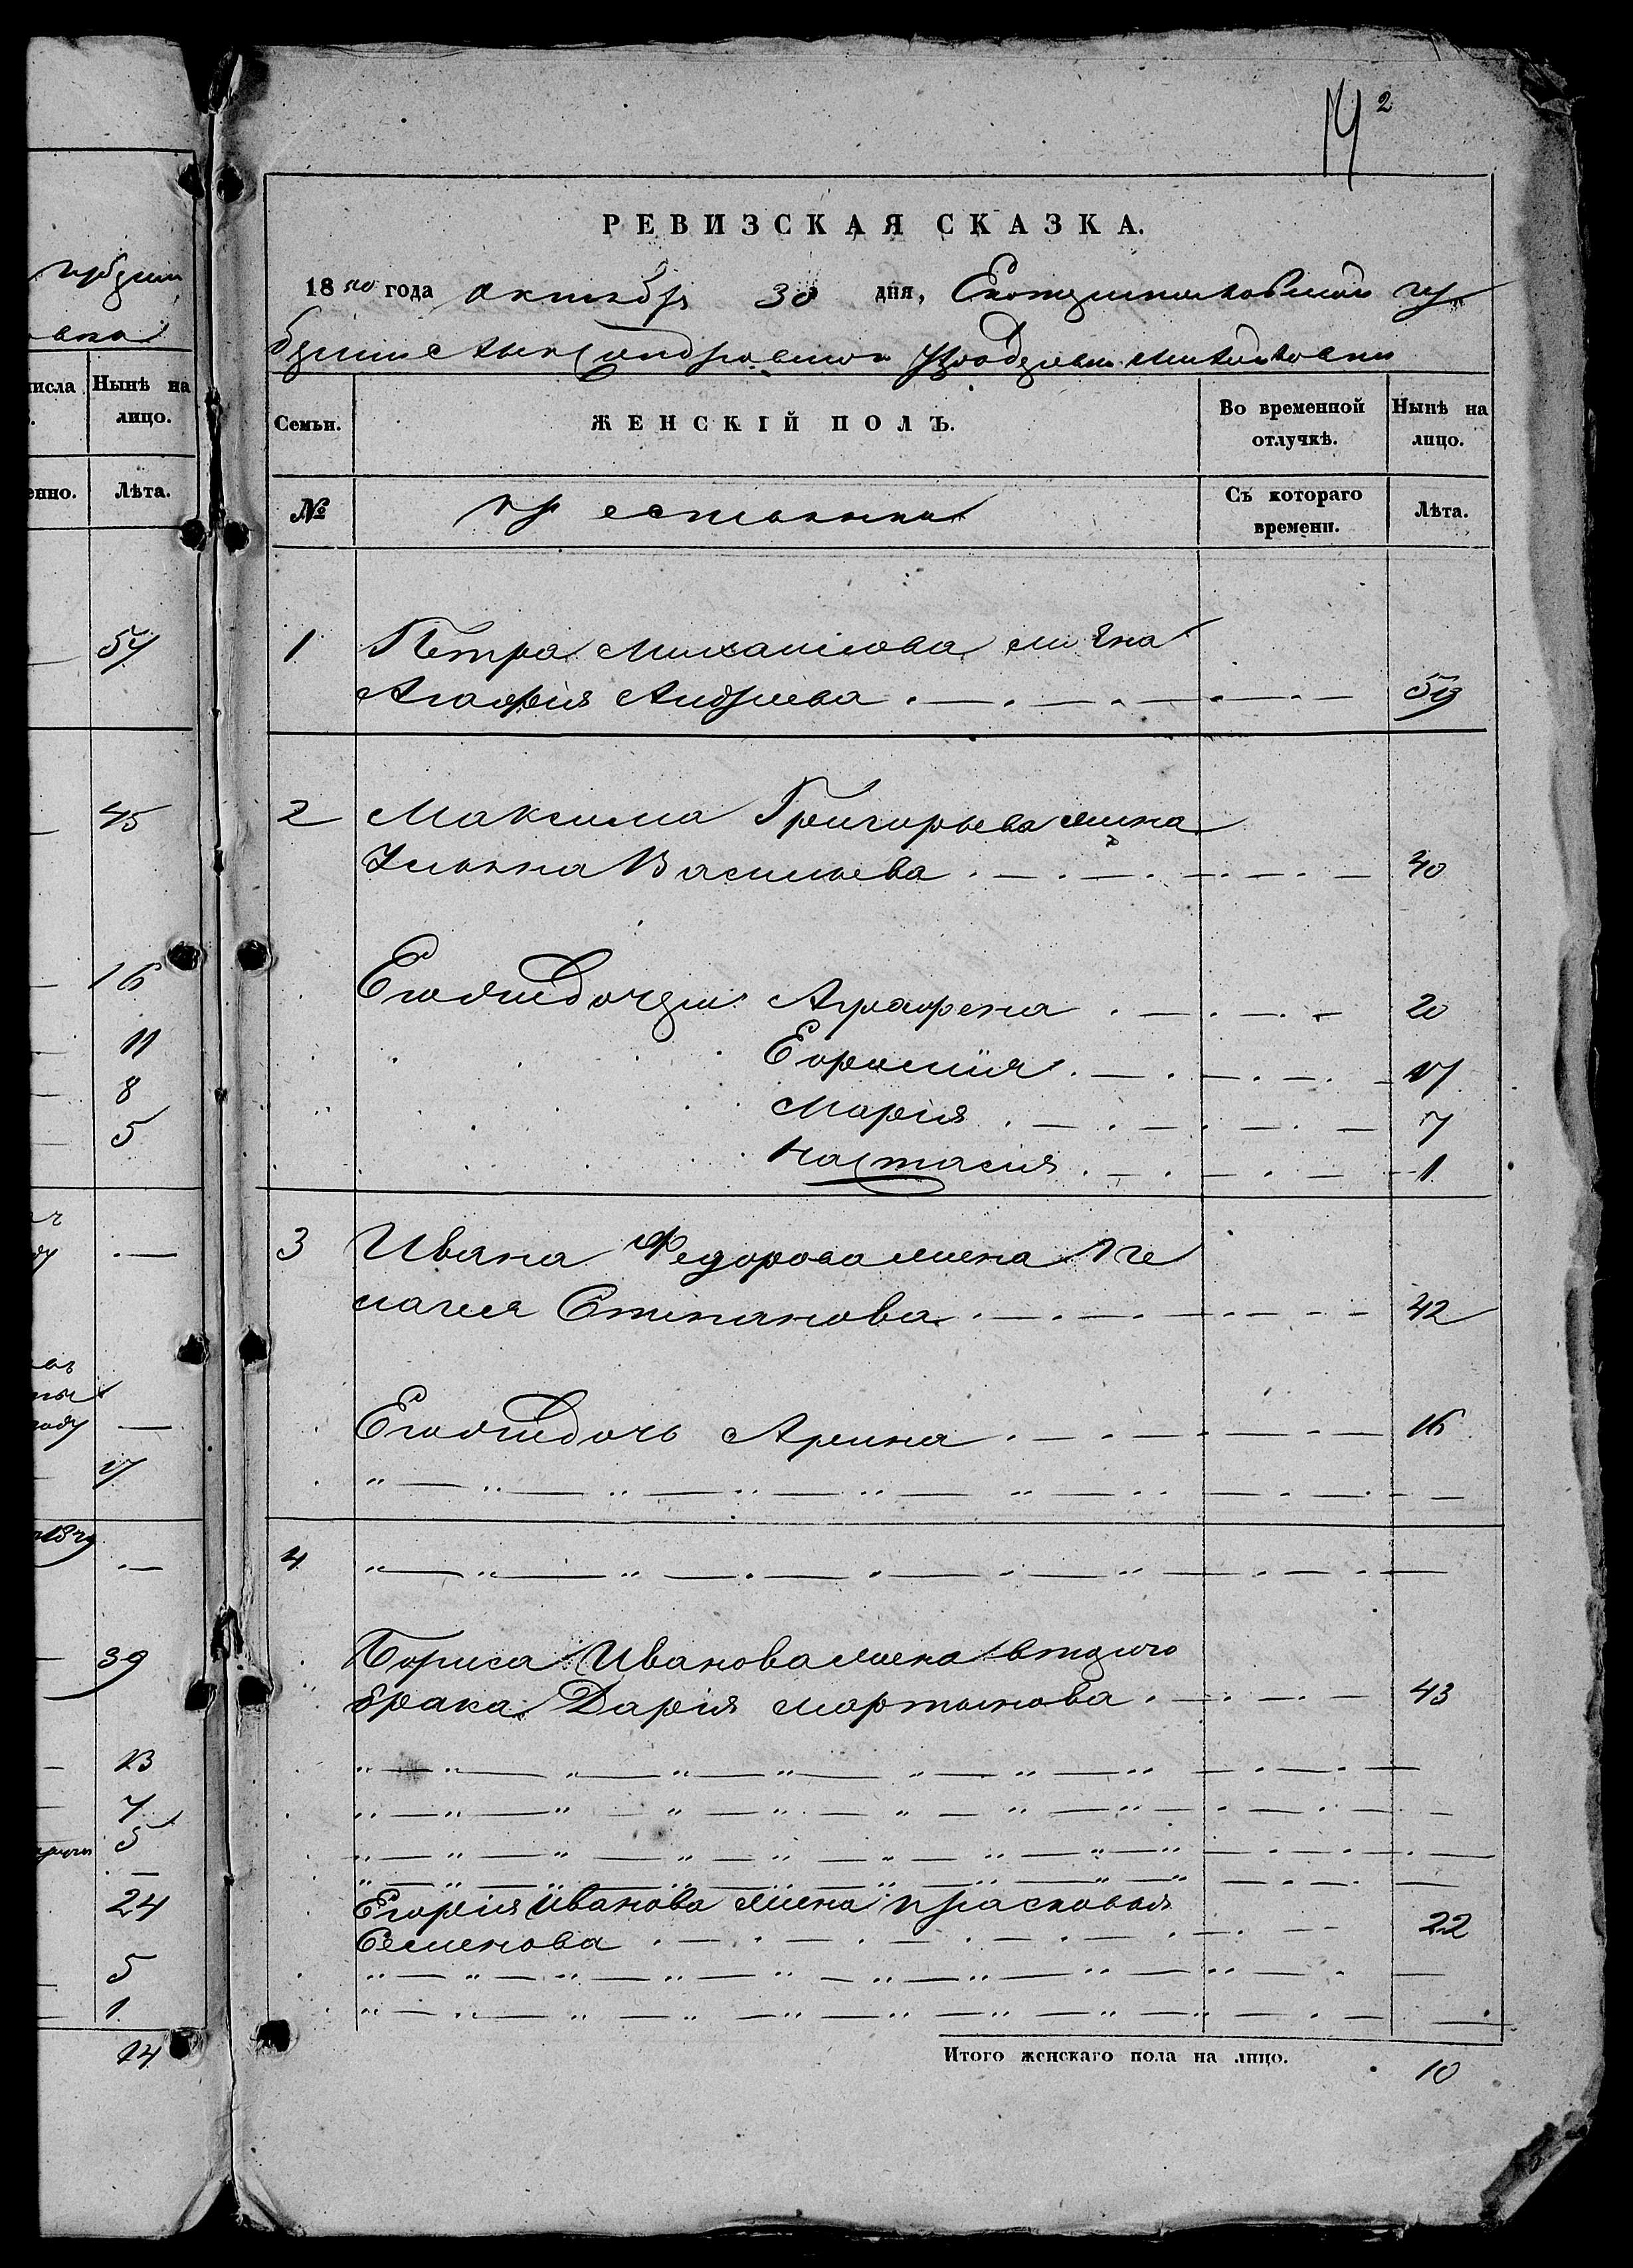 губерніи
14 2
РЕВИЗСКАЯ СКАЗКА.
1850 года октября 30 дня, Екатеринославской гу
берніи Александровскаго уѣзда деревни
числа
Нынѣ на
лицо.
Семьи.
ЖЕНСКІЙ ПОЛЪ.
Во временной
отлучкѣ.
Нынѣ на
лицо.
енно.
Лѣта.
№
крестьянъ
Съ котораго
времени.
Лѣта.
54
1 Петра Михайлова жена
Агафія Андреева 59
45
2 Максима Григорьева жена
Ульяна Васильева 40
16
Его дочери Аграфена 20
11
Ефимія 17
8
Марія 7
5
Настасія 1
3 Ивана Федорова жена Пе
лагея Степанова 42
Его дочь Арина 16
17
4
39
Бориса Иванова жена втораго
брака Дарія Мартынова 43
13
7
5
24
Егорія Иванова жена Прасковья
Семенова 22
5
1
14
Итого женскаго пола на лицо. 10